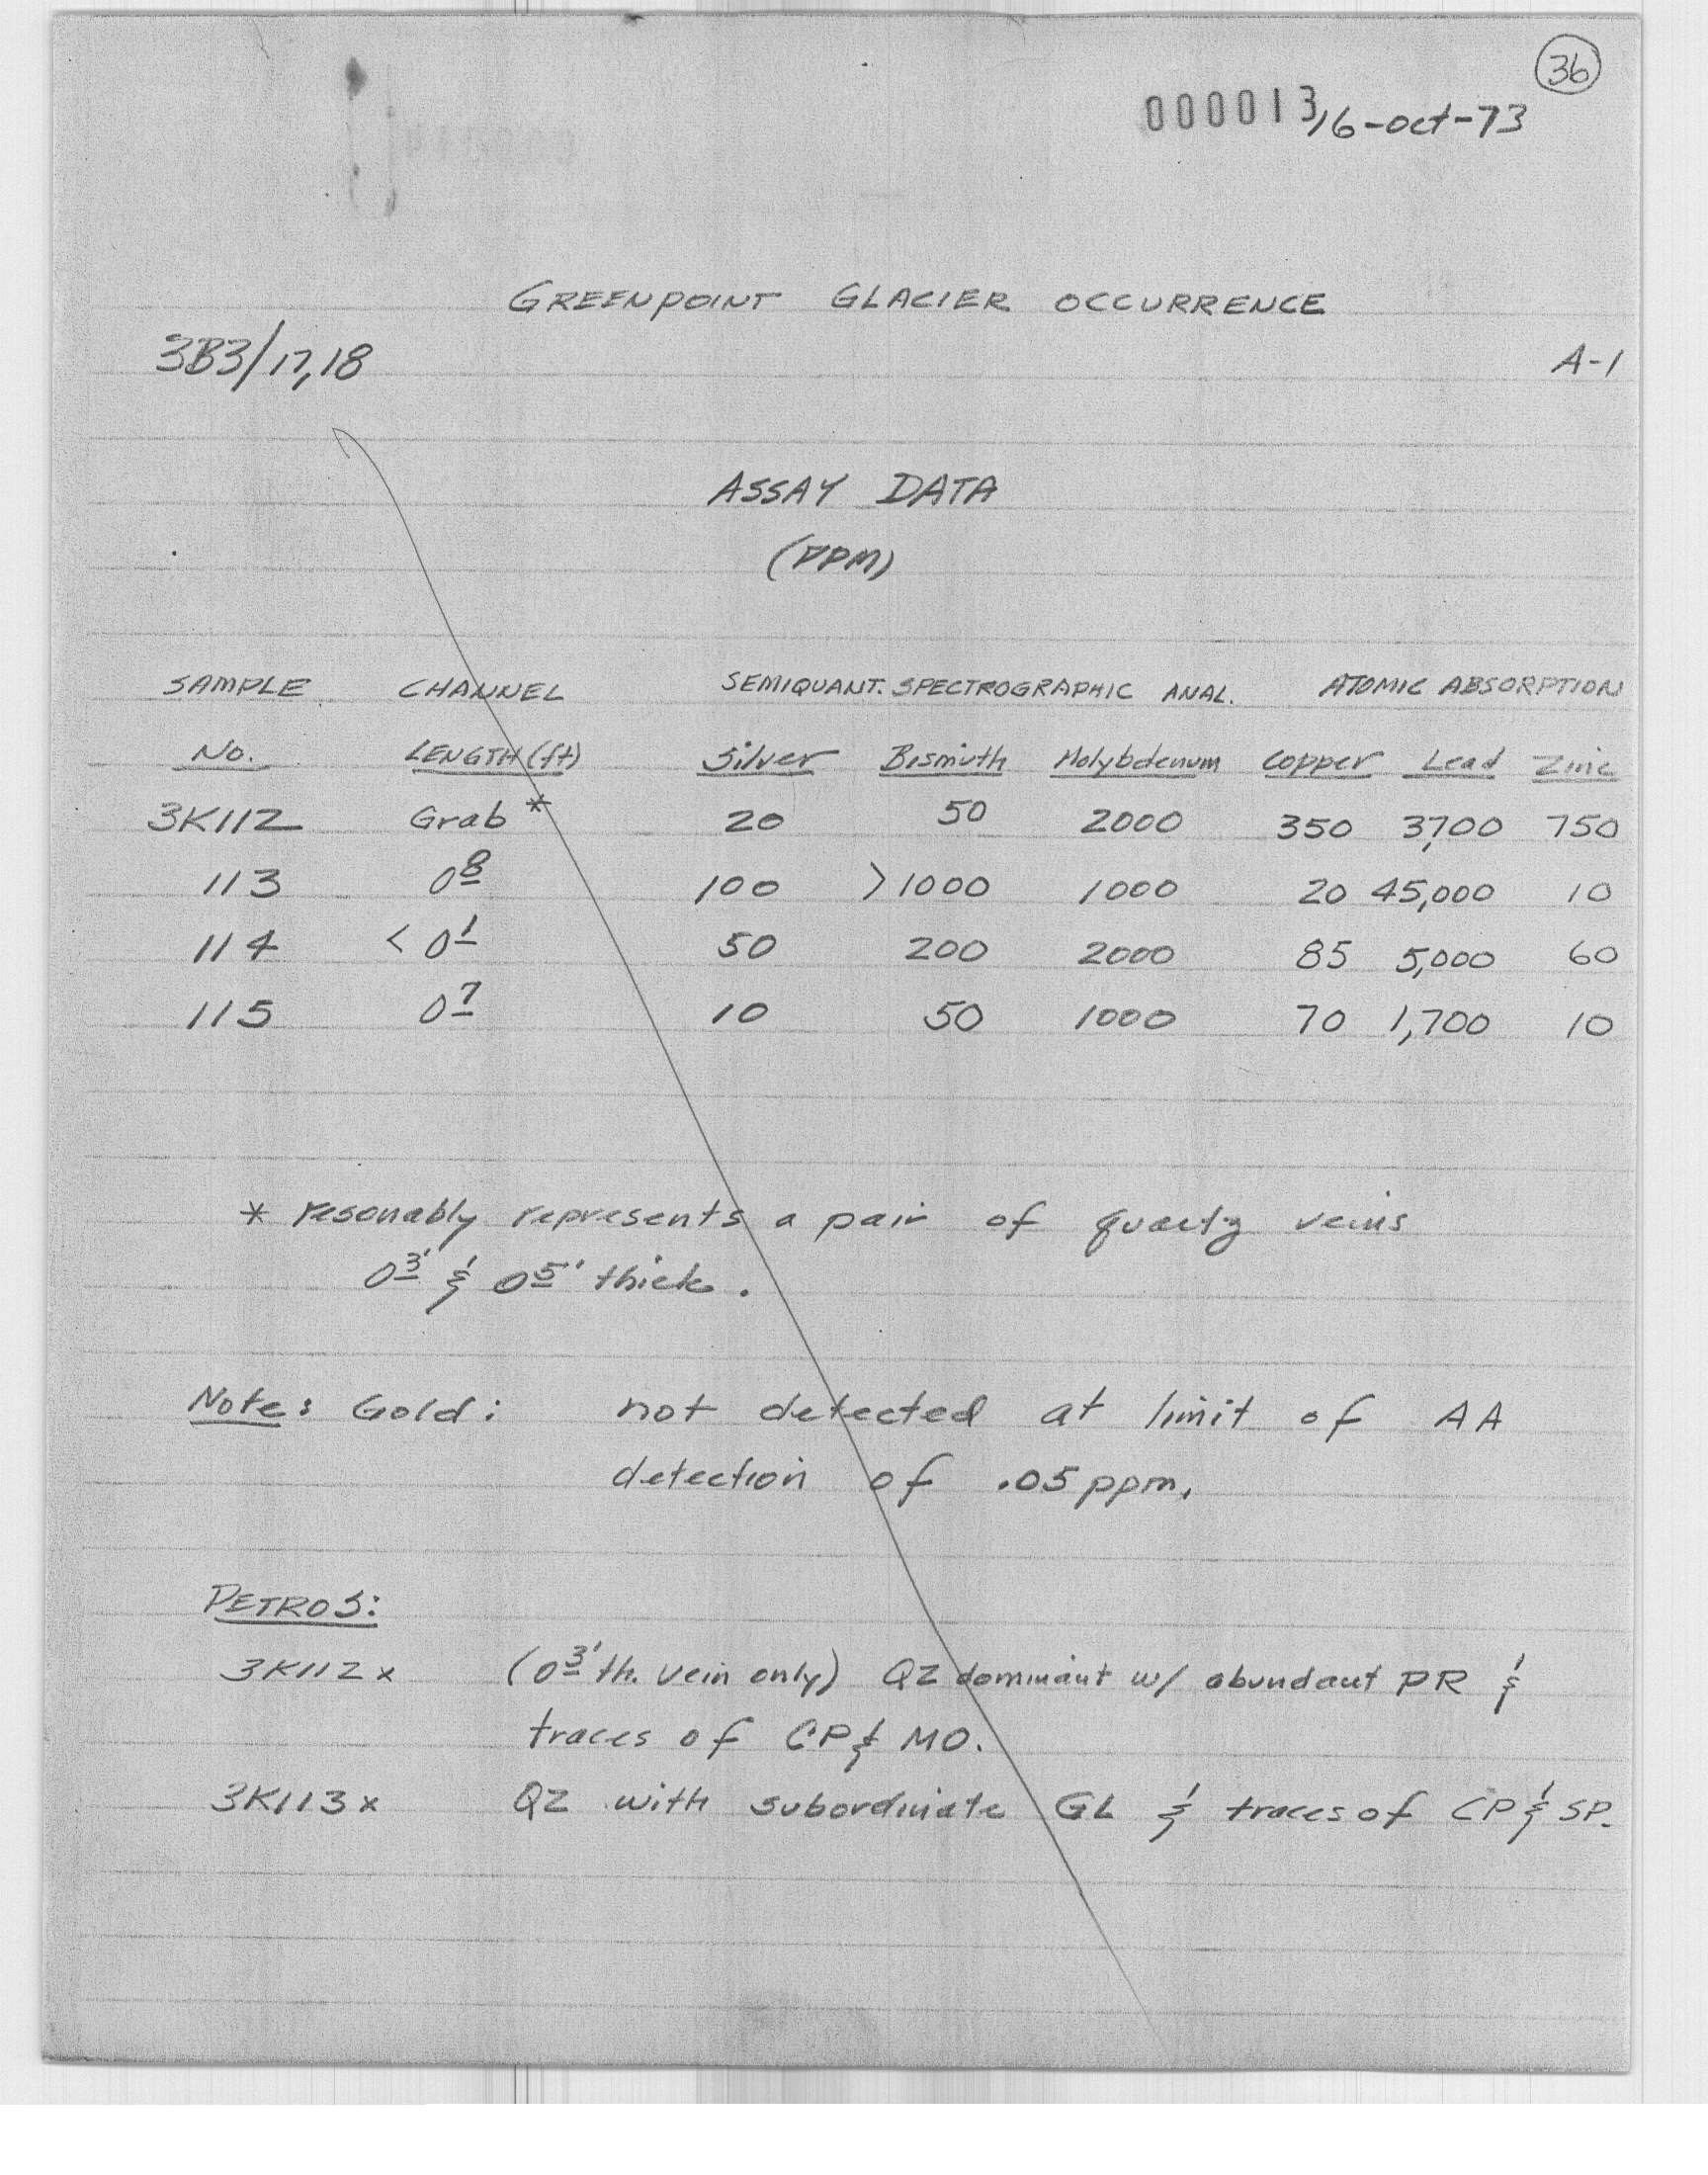 36
000013 16-oct-73
GREENPOINT GLACIER OCCURRENCE
3B3/17,18 A-1
ASSAY DATA
(PPM)
SAMPLE CHANNEL SEMIQUANT. SPECTROGRAPHIC ANAL. ATOMIC ABSORPTION
No. LENGTH (ft) Silver Bismuth Molybdenum Copper Lead Zinc
3K112 Grab * 20 50 2000 350 3,700 750
113 0 8 100 >1000 1000 20 45,000 10
114 < 0 1 50 200 2000 85 5,000 60
115 0 7 10 50 1000 70 1,700 10
* resonably represents a pair of quartz veins
0 3' & 0 5' thick.
Note: Gold: not detected at limit of AA
detection of .05 ppm.
PETROS:
3K112x (0 3' th. vein only) QZ dominant w/ abundant PR &
traces of CP & MO.
3K113x QZ with subordinate GL & traces of CP & SP.